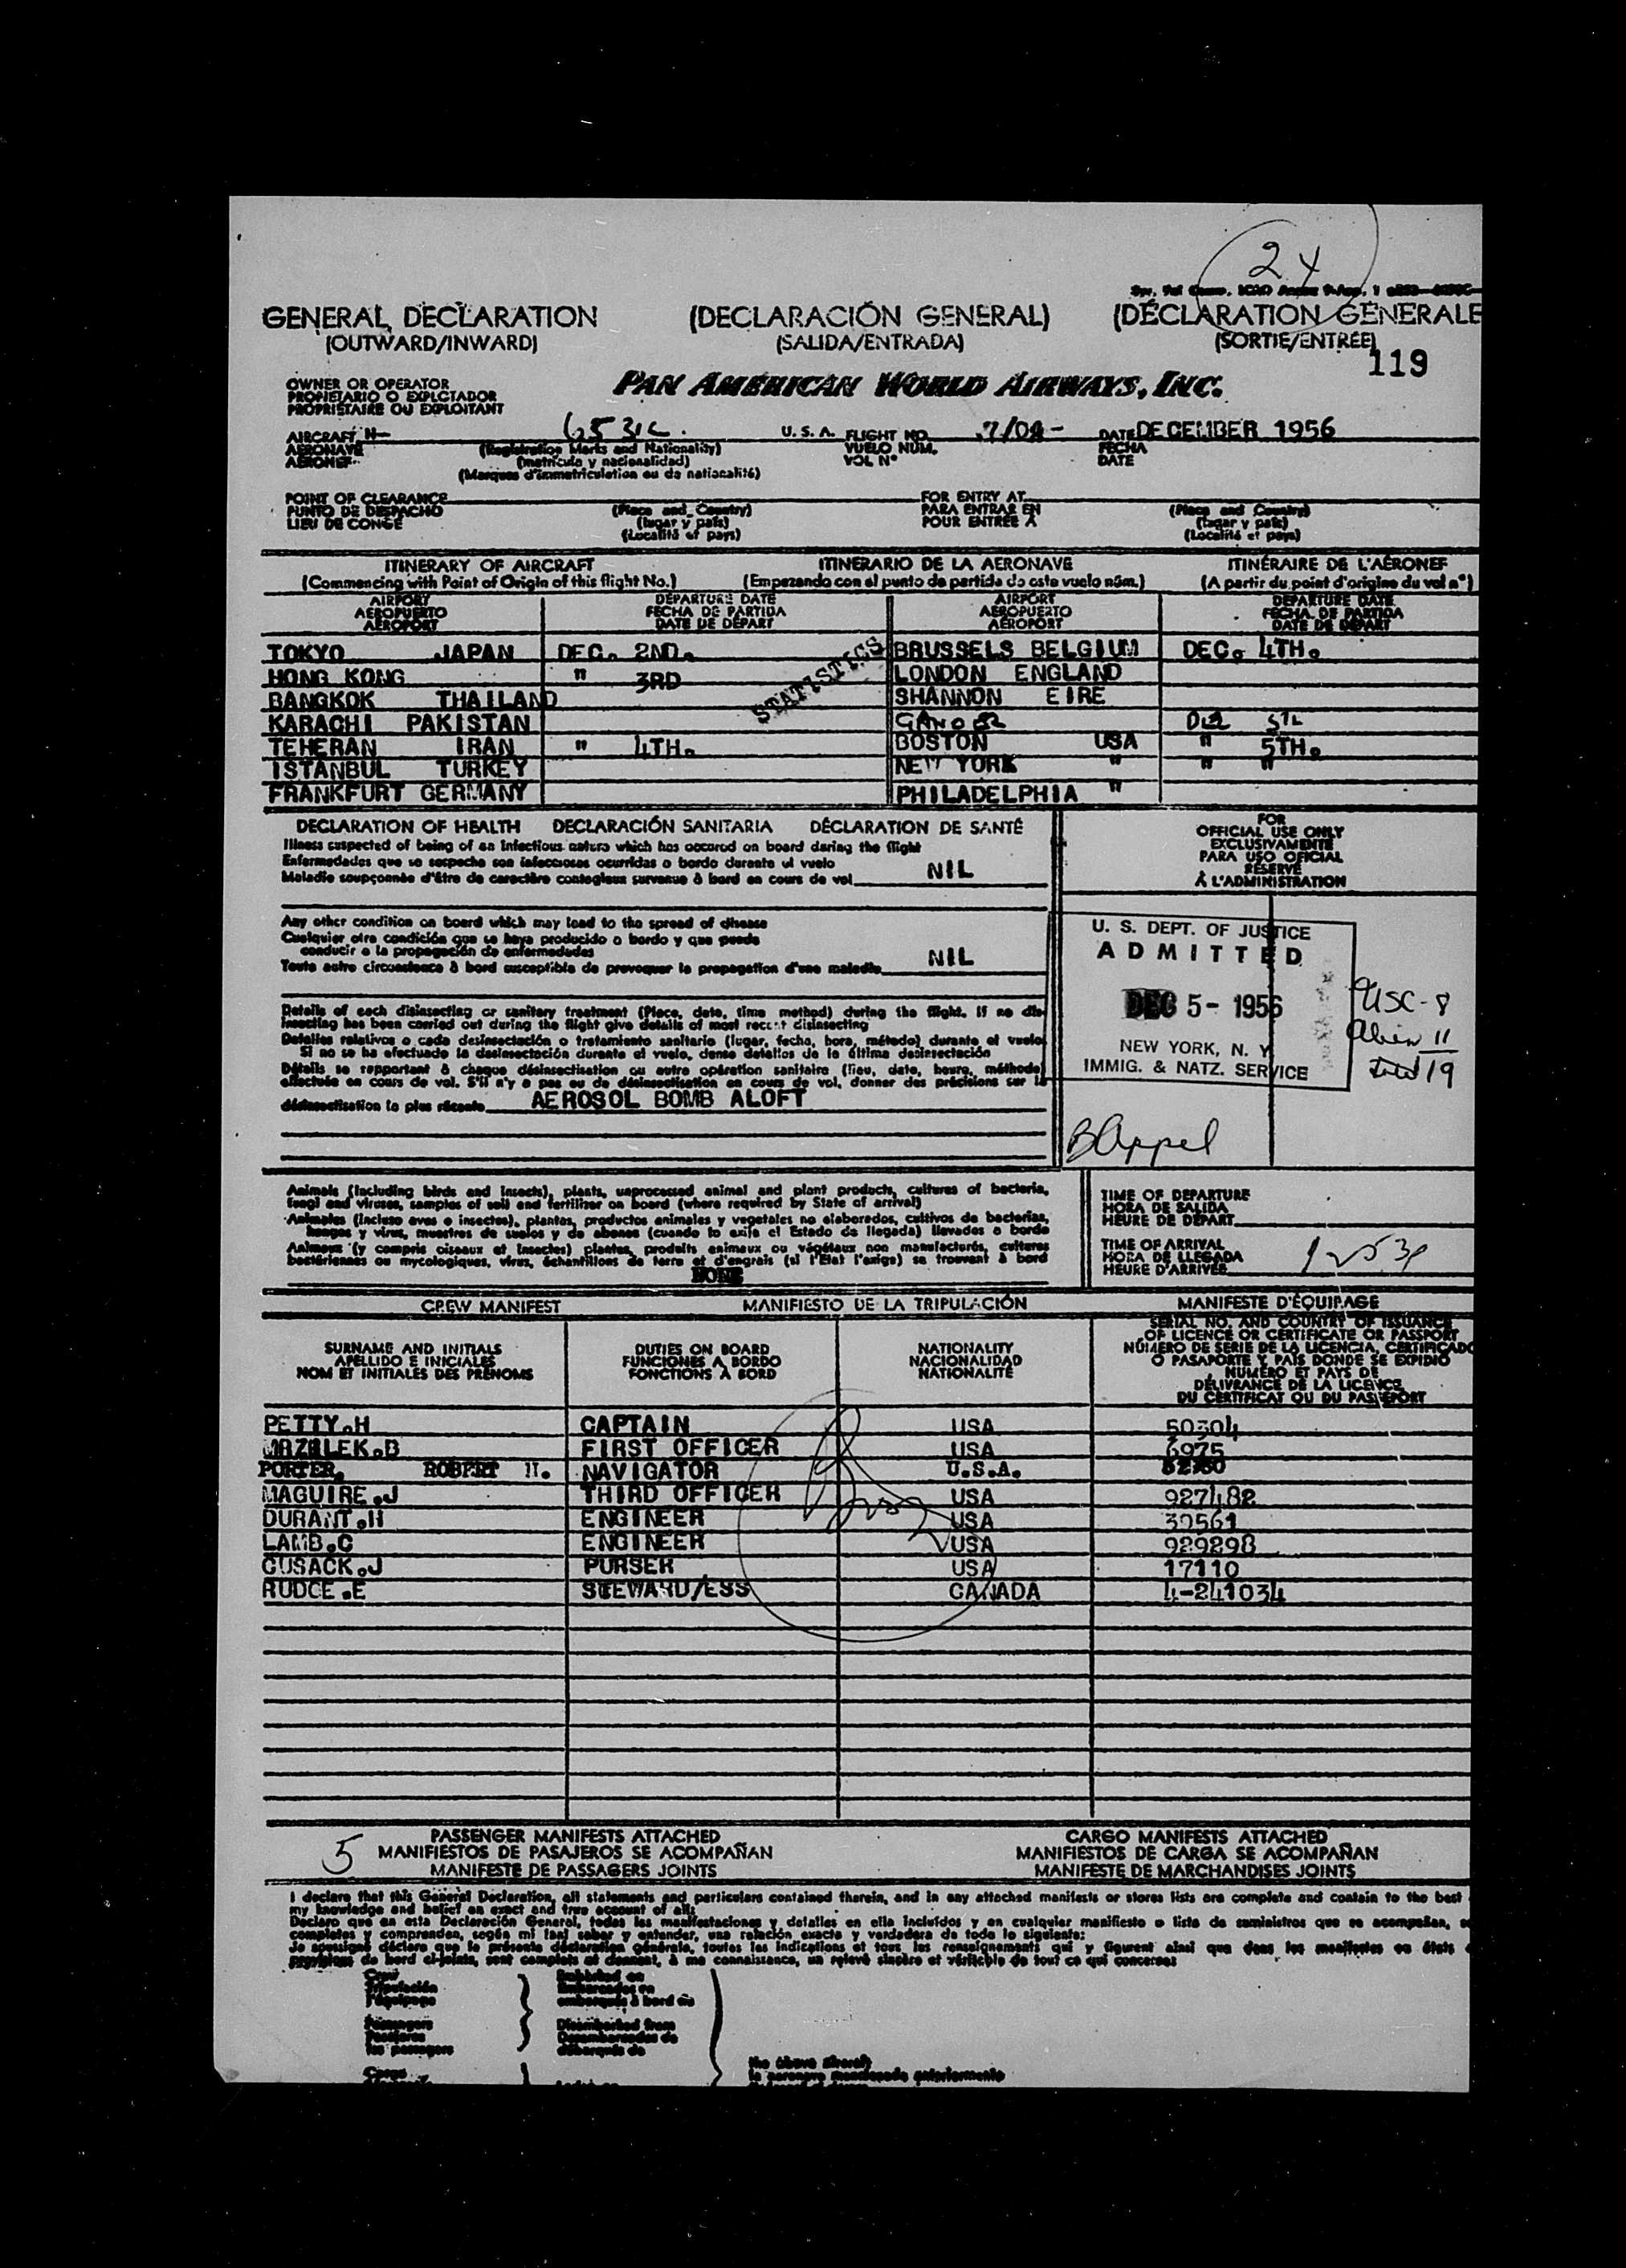 24
GENERAL DECLARATION (DECLARACIÓN GENERAL) (DÉCLARATION GENERALE
(OUTWARD/INWARD) (SALIDA/ENTRADA) (SORTIE/ENTREE)
119
OWNER OR OPERATOR
PROPIETARIO O EXPLOTADOR
PROPRIÉTAIRE OU EXPLOITANT
PAN AMERICAN WORLD AIRWAYS, INC.
AIRCRAFT N- U. S. A. FLIGHT NO. DATE DECEMBER 1956
AERONAVE (Registration Marks and Nationality) VUELO NUM. FECHA
AERONEF (matrícula y nacionalidad) VOL N° DATE
(Marques d'immatriculation ou de nationalité)
POINT OF CLEARANCE FOR ENTRY AT
PUNTO DE DESPACHO (Place and Country) PARA ENTRAR EN (Place and Country)
LIEU DE CONGÉ (lugar y país) POUR ENTRÉE À (lugar y país)
(Localité et pays) (Localité et pays)
ITINERARY OF AIRCRAFT ITINERARIO DE LA AERONAVE ITINÉRAIRE DE L'AÉRONEF
(Commencing with Point of Origin of this flight No.) (Empezando con el punto de partida de este vuelo núm.) (A partir du point d'origine du vol n°)
AIRPORT DEPARTURE DATE AIRPORT DEPARTURE DATE
AEROPUERTO FECHA DE PARTIDA AEROPUERTO FECHA DE PARTIDA
AÉROPORT DATE DE DÉPART AÉROPORT DATE DE DÉPART
TOKYO JAPAN DEC. 2ND. BRUSSELS BELGIUM DEC. 4TH.
HONG KONG " 3RD LONDON ENGLAND
BANGKOK THAILAND STATISTICS SHANNON EIRE
KARACHI PAKISTAN GANDER
TEHERAN IRAN " 4TH. BOSTON USA " 5TH.
ISTANBUL TURKEY NEW YORK " " "
FRANKFURT GERMANY PHILADELPHIA "
DECLARATION OF HEALTH DECLARACIÓN SANITARIA DÉCLARATION DE SANTÉ
Illness suspected of being of an infectious nature which has occured on board during the flight
Enfermedades que se sospeche son infecciosas ocurridas a bordo durante el vuelo
Maladie soupçonnée d'être de caractère contagieux survenue à bord en cours de vol NIL
FOR
OFFICIAL USE ONLY
EXCLUSIVAMENTE
PARA USO OFICIAL
RÉSERVÉ
À L'ADMINISTRATION
Any other condition on board which may lead to the spread of disease
Cualquier otra condición que se haya producido a bordo y que pueda
conducir a la propagación de enfermedades
Toute autre circonstance à bord susceptible de provoquer la propagation d'une maladie NIL
U. S. DEPT. OF JUSTICE
ADMITTED
DEC 5 - 1956
NEW YORK, N. Y.
IMMIG. & NATZ. SERVICE
USC-8
Alien 11
19
Details of each disinsecting or sanitary treatment (Place, date, time method) during the flight. If no dis-
insecting has been carried out during the flight give details of most recent disinsecting
Detalles relativos a cada desinsectación o tratamiento sanitario (lugar, fecha, hora, método) durante el vuelo
Si no se ha efectuado la desinsectación durante el vuelo, dense detalles de la última desinsectación
Détails se rapportant à chaque désinsectisation ou autre opération sanitaire (lieu, date, heure, méthode)
effectuée en cours de vol. S'il n'y a pas eu de désinsectisation en cours de vol, donner des précisions sur la
désinsectisation la plus récente AEROSOL BOMB ALOFT
Animals (including birds and insects), plants, unprocessed animal and plant products, cultures of bacteria,
fungi and viruses, samples of soil and fertilizer on board (where required by State of arrival)
Animales (incluso aves e insectos), plantas, productos animales y vegetales no elaborados, cultivos de bacterias,
hongos y virus, muestras de suelos y de abonos (cuando lo exija el Estado de llegada) llevados a bordo
Animaux (y compris oiseaux et insectes) plantes, produits animaux ou végétaux non manufacturés, cultures
bactériennes ou mycologiques, virus, échantillons de terre et d'engrais (si l'Etat l'exige) se trouvant à bord
NONE
TIME OF DEPARTURE
HORA DE SALIDA
HEURE DE DÉPART
TIME OF ARRIVAL
HORA DE LLEGADA
HEURE D'ARRIVÉE
CREW MANIFEST MANIFIESTO DE LA TRIPULACIÓN MANIFESTE D'ÉQUIPAGE
SURNAME AND INITIALS
APELLIDO E INICIALES
NOM ET INITIALES DES PRÉNOMS
DUTIES ON BOARD
FUNCIONES A BORDO
FONCTIONS À BORD
NATIONALITY
NACIONALIDAD
NATIONALITÉ
SERIAL NO. AND COUNTRY OF ISSUANCE
OF LICENCE OR CERTIFICATE OR PASSPORT
NÚMERO DE SERIE DE LA LICENCIA, CERTIFICADO
O PASAPORTE Y PAÍS DONDE SE EXPIDIÓ
NUMÉRO ET PAYS DE
DÉLIVRANCE DE LA LICENCE
DU CERTIFICAT OU DU PASSEPORT
PETTY.H CAPTAIN USA 50304
MRZALEK.B FIRST OFFICER USA 6975
PORTER, ROBERT H. NAVIGATOR U.S.A.
MAGUIRE.J THIRD OFFICER USA 927482
DURANT.H ENGINEER USA 39561
LAMB.C ENGINEER USA 929298
CUSACK.J PURSER USA 17110
RUDCE.E STEWARD/ESS CANADA 4-241034
5
PASSENGER MANIFESTS ATTACHED CARGO MANIFESTS ATTACHED
MANIFIESTOS DE PASAJEROS SE ACOMPAÑAN MANIFIESTOS DE CARGA SE ACOMPAÑAN
MANIFESTE DE PASSAGERS JOINTS MANIFESTE DE MARCHANDISES JOINTS
I declare that this General Declaration, all statements and particulars contained therein, and in any attached manifests or stores lists are complete and contain to the best
my knowledge and belief an exact and true account of all:
Declaro que en esta Declaración General, todas las manifestaciones y detalles en ella incluídos y en cualquier manifiesto o lista de suministros que se acompañan,
completos y comprenden, según mi leal saber y entender, una relación exacta y verdadera de todo lo siguiente:
Je soussigné déclare que la présente déclaration générale, toutes les indications et tous les renseignements qui y figurent ainsi que dans les manifestes ou états
provisions de bord ci-joints, sont complets et donnent, à ma connaissance, un relevé sincère et véritable de tout ce qui concerne:
Crew
Tripulación
l'équipage
Embarked on
Embarcados en
embarqués à bord de
Passengers
Pasajeros
les passagers
Disembarked from
Desembarcados de
débarqués de
Cargo
the above aircraft
la aeronave mencionada anteriormente